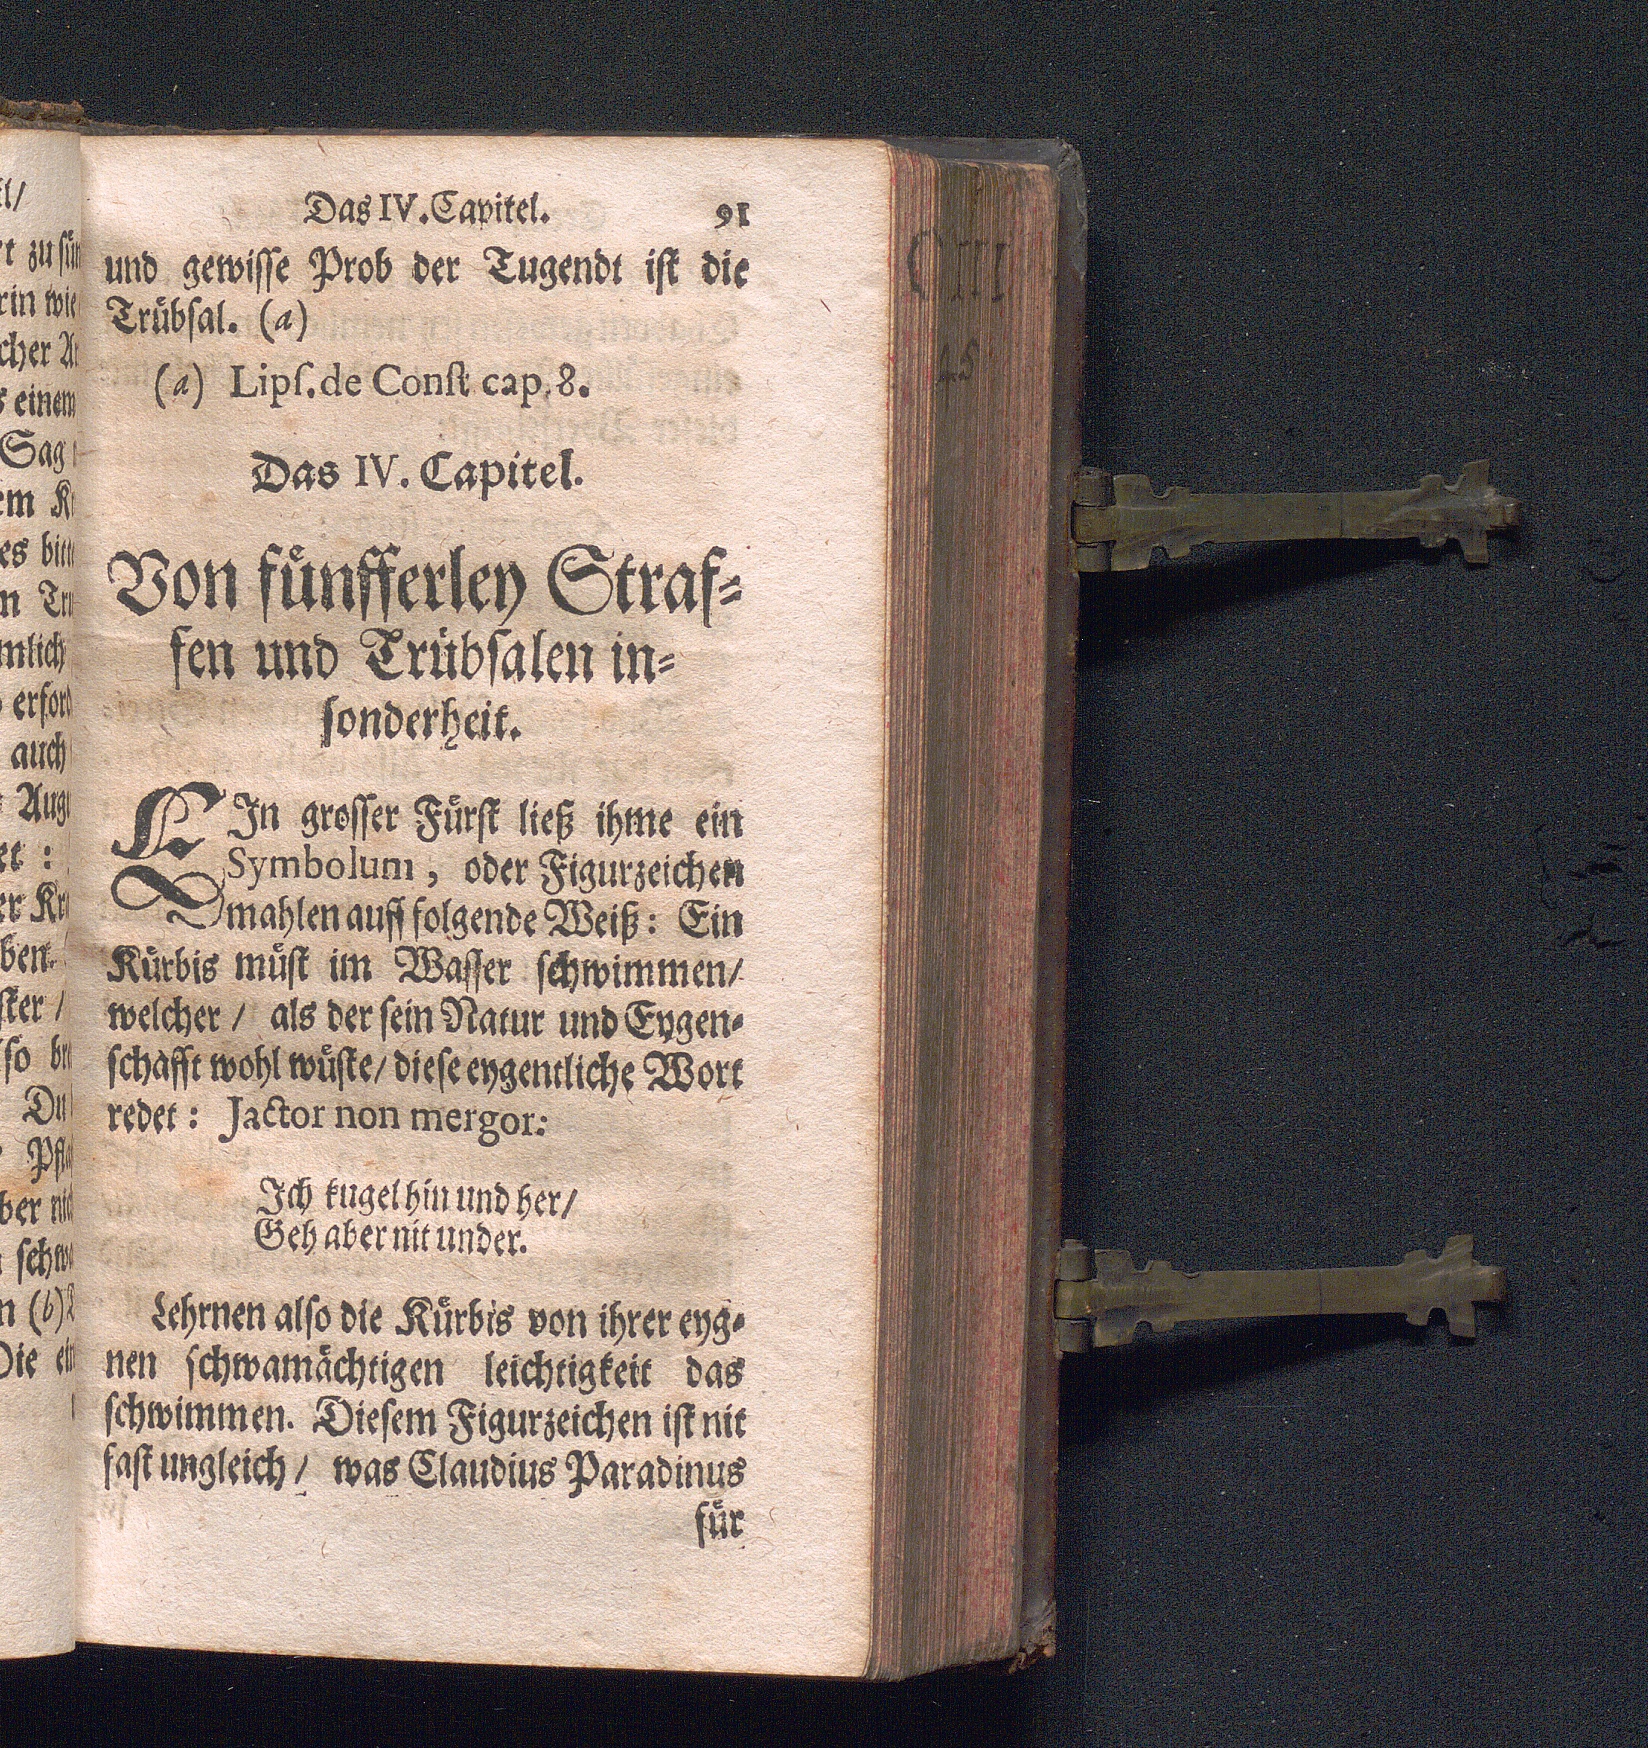 Das IV. Capitel. 91
und gewisse Prob der Tugendt ist die
Trübsal. (a)
(a) Lips. de Const cap. 8.
Das IV. Capitel.
Von fünfferley Straf-
fen und Trübsalen in-
sonderheit.
EIn grosser Fürst ließ ihme ein
Symbolum, oder Figurzeichen
mahlen auff folgende Weiß: Ein
Kürbis müst im Wasser schwimmen/
welcher/ als der sein Natur und Eygen-
schafft wohl wüste/ diese eygentliche Wort
redet: Jactor non mergor:
Ich kugel hin und her/
Geh aber nit under.
Lehrnen also die Kürbis von ihrer eyg-
nen schwamächtigen leichtigkeit das
schwimmen. Diesem Figurzeichen ist nit
fast ungleich/ was Claudius Paradinus
für